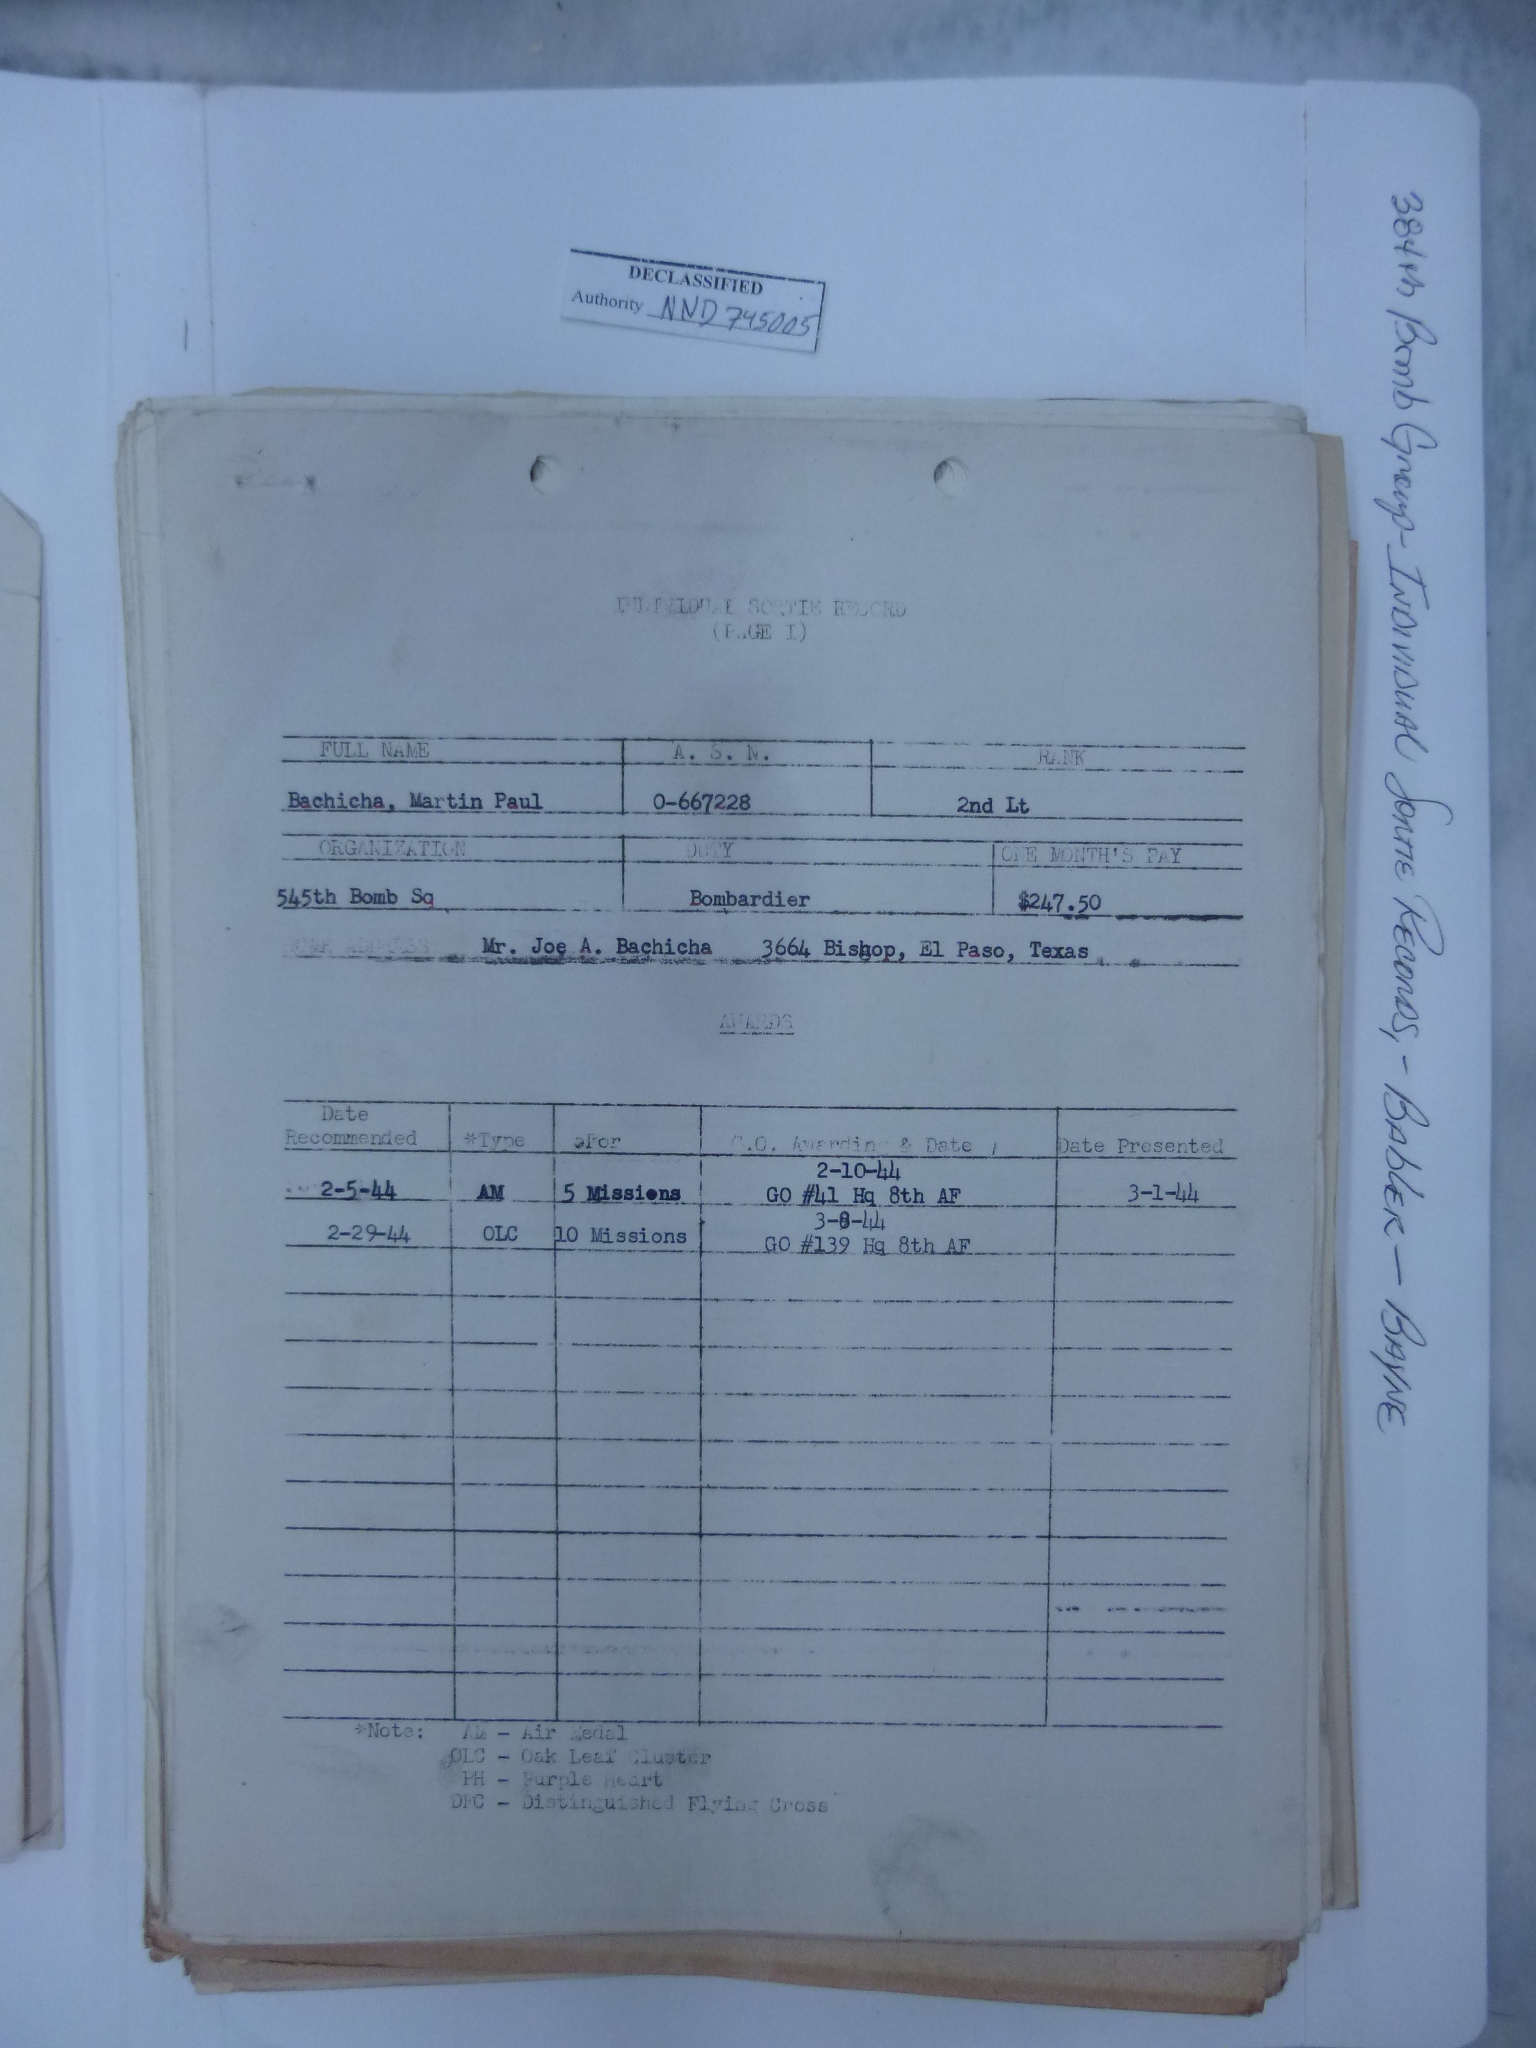 DECLASSIFIED
Authority NND 745005
384th Bomb Group - Individual Sortie Records, - Babler — Bayne
INDIVIDUAL SORTIE RECORD
(PAGE I)
FULL NAME A. S. N. RANK
Bachicha, Martin Paul 0-667228 2nd Lt
ORGANIZATION DUTY ONE MONTH'S PAY
545th Bomb Sq Bombardier $247.50
HOME ADDRESS Mr. Joe A. Bachicha 3664 Bishop, El Paso, Texas
AWARDS
Date
Recommended *Type For G.O. Awarding & Date Date Presented
2-10-44
2-5-44 AM 5 Missions GO #41 Hq 8th AF 3-1-44
3-8-44
2-29-44 OLC 10 Missions GO #139 Hq 8th AF
*Note: AM - Air Medal
OLC - Oak Leaf Cluster
PH - Purple Heart
DFC - Distinguished Flying Cross